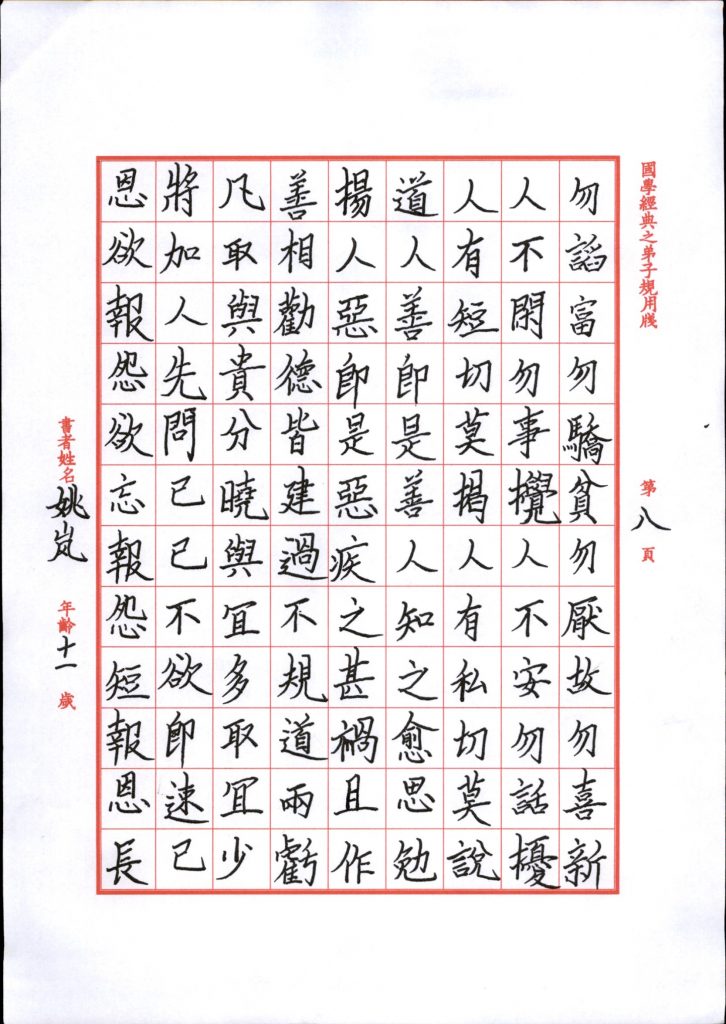 國學經典之弟子規用牋
第八頁
勿諂富勿驕貧勿厭故勿喜新
人不閑勿事攪人不安勿話擾
人有短切莫揭人有私切莫說
道人善即是善人知之愈思勉
揚人惡即是惡疾之甚禍且作
善相勸德皆建過不規道兩虧
凡取與貴分曉與宜多取宜少
將加人先問己己不欲即速已
恩欲報怨欲忘報怨短報恩長
書者姓名姚岚
年齡十一歲